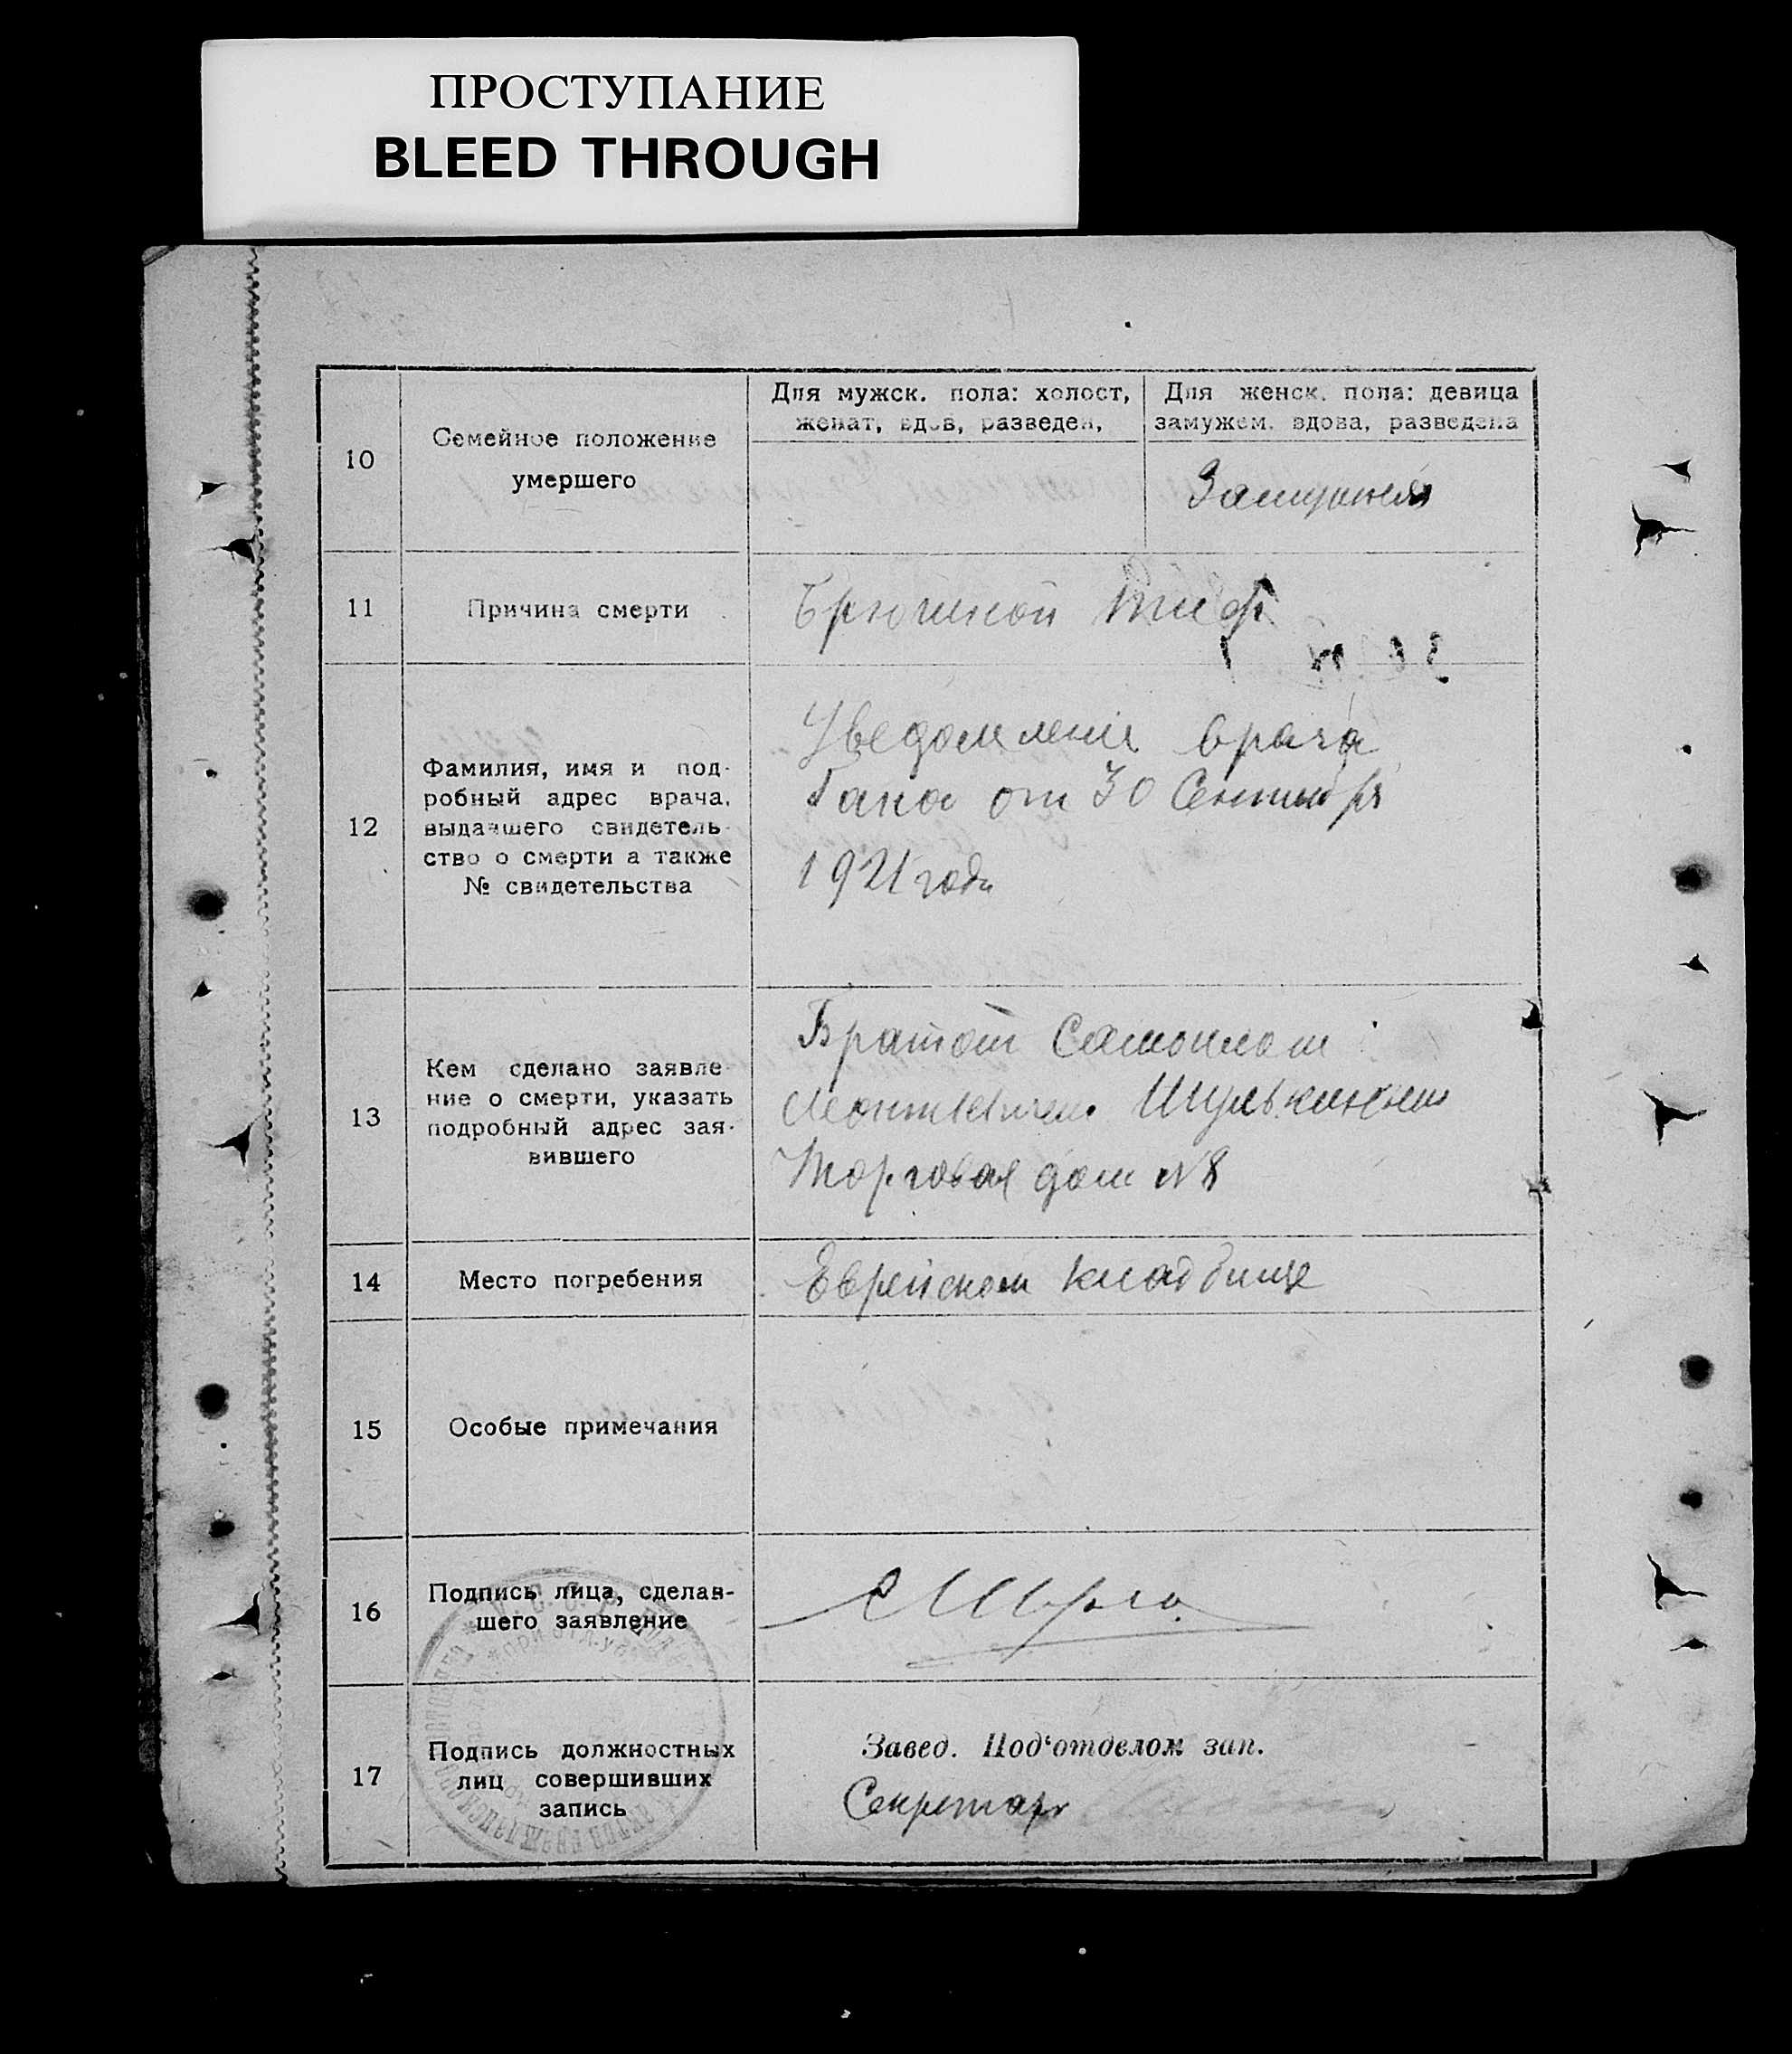 ПРОСТУПАНИЕ
BLEED THROUGH
10
Семейное положение
умершего
Для мужск. пола: холост,
женат, вдов, разведен,
Для женск. пола: девица
замужем. вдова, разведена
Замужняя
11
Причина смерти
Брюшной тиф
12
Фамилия, имя и под-
робный адрес врача,
выдавшего свидетель-
ство о смерти а также
№ свидетельства
Уведомление врача
Гана от 30 Сентября
1921 года
13
Кем сделано заявле-
ние о смерти, указать
подробный адрес зая-
вившего
Братом Самоилом
Шулькиным
Торговая дом №8
14
Место погребения
Еврейском кладбище
15
Особые примечания
16
Подпись лица, сделав-
шего заявление
17
Подпись должностных
лиц совершивших
запись
Завед. Под‘отделом зап.
Секретарь